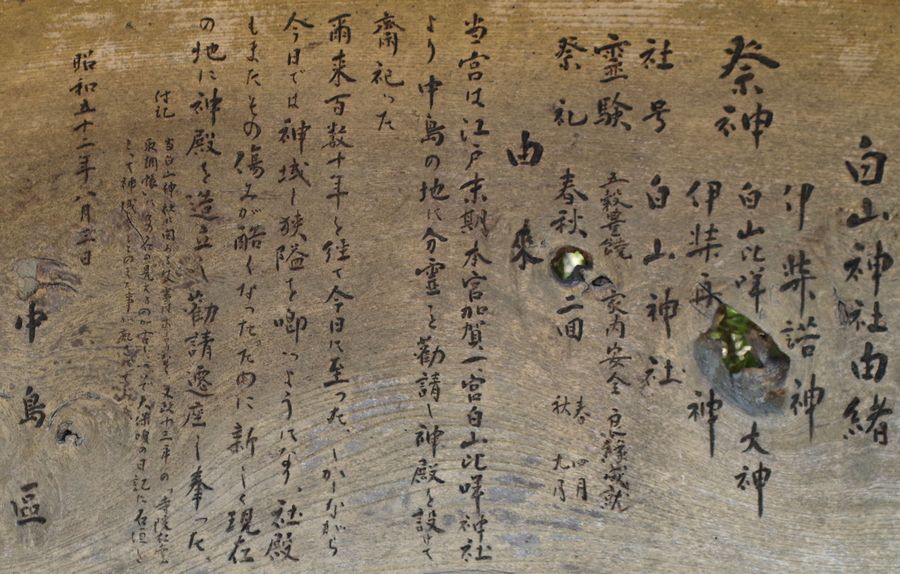 白山神社由緒
祭神
伊柴諾神
白山比咩大神
伊柴再神
社号 白山神社
霊験 五穀豊饒 家内安全 良縁成就
祭礼 春秋二回 春四月 秋九月
由来
当宮は江戸末期本宮加賀一宮白山比咩神社
より中島の地に分霊を勧請し神殿を設けて
齋祀った
爾来百数十年を経て今日に至った、しかしながら
今日では神域し狭隘を喞つようになり、社殿
もまたその傷みが酷くなったために新しく現在
の地に神殿を造立し勧請遷座し奉った、
付記 当白山神社に関する文書
文政十三年の
天保頃の日記に石垣を
昭和五十二年八月三日
中島區